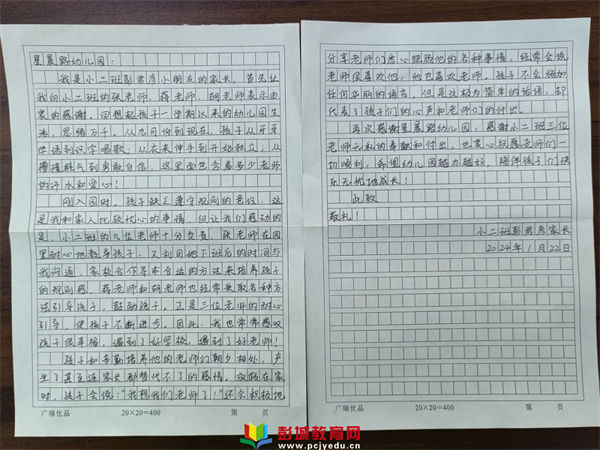 星晨路幼儿园：
我是小二班彭君彦小朋友的家长。首先让
我向小二班的张老师、薛老师、胡老师表示由
衷的感谢。回想起孩子一学期以来的幼儿园生
活，思绪万千。从九月份到现在，孩子从牙牙
学语到识字唱歌；从衣来伸手到开始独立；从
懵懂胆怯到勇敢自信，这里面包含着多少老师
的汗水和爱心！
刚入园时，孩子缺乏遵守规则的意识，这
是我和家人比较忧心的事情，但让我们感动的
是，小二班的几位老师十分负责，张老师在园
里耐心地教导孩子，又利用她下班后的时间与
我沟通，家校合作寻求合适的方法来培养孩子
的规则感。薛老师和胡老师也经常采取各种方
法引导孩子，鼓励孩子。正是三位老师的耐心
引导，使孩子不断进步。因此，我也常常感叹
孩子很幸福，遇到了好学校，遇到了好老师！
孩子和辛勤培养他的老师们朝夕相处，产
生了甚至连家长都替代不了的感情。放假在家
时，孩子会说："我想我们老师了！"还会积极地
广瑞优品
20×20=400
第 页
分享老师们悉心照顾他的各种事情，经常会说
老师很喜欢他，他也喜欢老师。孩子不会添加
任何华丽的语言，但是这极为简单的话语，却
代表了孩子们的心声和老师们的付出。
再次感谢星晨路幼儿园，感谢小二班三位
老师无私的奉献和付出，也衷心祝愿老师们一
切顺利，希望幼儿园越办越好，陪伴孩子们快
乐无忧地成长！
此致
敬礼！
小二班彭君彦家长
2024年1月22日
广瑞优品
20×20=400
第 页
彭城教育网
www.pcjyedu.cn